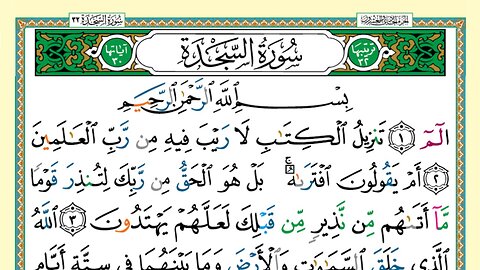 سُورَةُ السَّجْدَةِ ٣٢
سُورَةُ السَّجْدَةِ
ترتيبها ٣٢
آياتها ٣٠
بِسْمِ ٱللَّهِ ٱلرَّحْمَٰنِ ٱلرَّحِيمِ
الٓمٓ ﴿١﴾ تَنزِيلُ ٱلْكِتَٰبِ لَا رَيْبَ فِيهِ مِن رَّبِّ ٱلْعَٰلَمِينَ
﴿٢﴾ أَمْ يَقُولُونَ ٱفْتَرَىٰهُ ۚ بَلْ هُوَ ٱلْحَقُّ مِن رَّبِّكَ لِتُنذِرَ قَوْمًا
مَّآ أَتَىٰهُم مِّن نَّذِيرٍ مِّن قَبْلِكَ لَعَلَّهُمْ يَهْتَدُونَ ﴿٣﴾ ٱللَّهُ
ٱلَّذِي خَلَقَ ٱلسَّمَٰوَٰتِ وَٱلْأَرْضَ وَمَا بَيْنَهُمَا فِي سِتَّةِ أَيَّامٍ